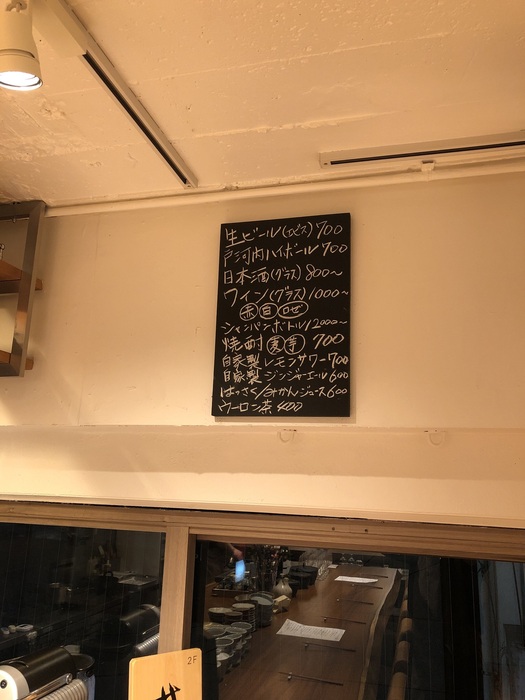 生ビール(エビス) 700
戸河内ハイボール 700
日本酒(グラス) 800〜
ワイン(グラス) 1000〜
赤 白 ロゼ
シャンパンボトル 12000〜
焼酎 麦 芋 700
自家製レモンサワー 700
自家製ジンジャーエール 600
はっさく/みかんジュース 600
ウーロン茶 400
2F